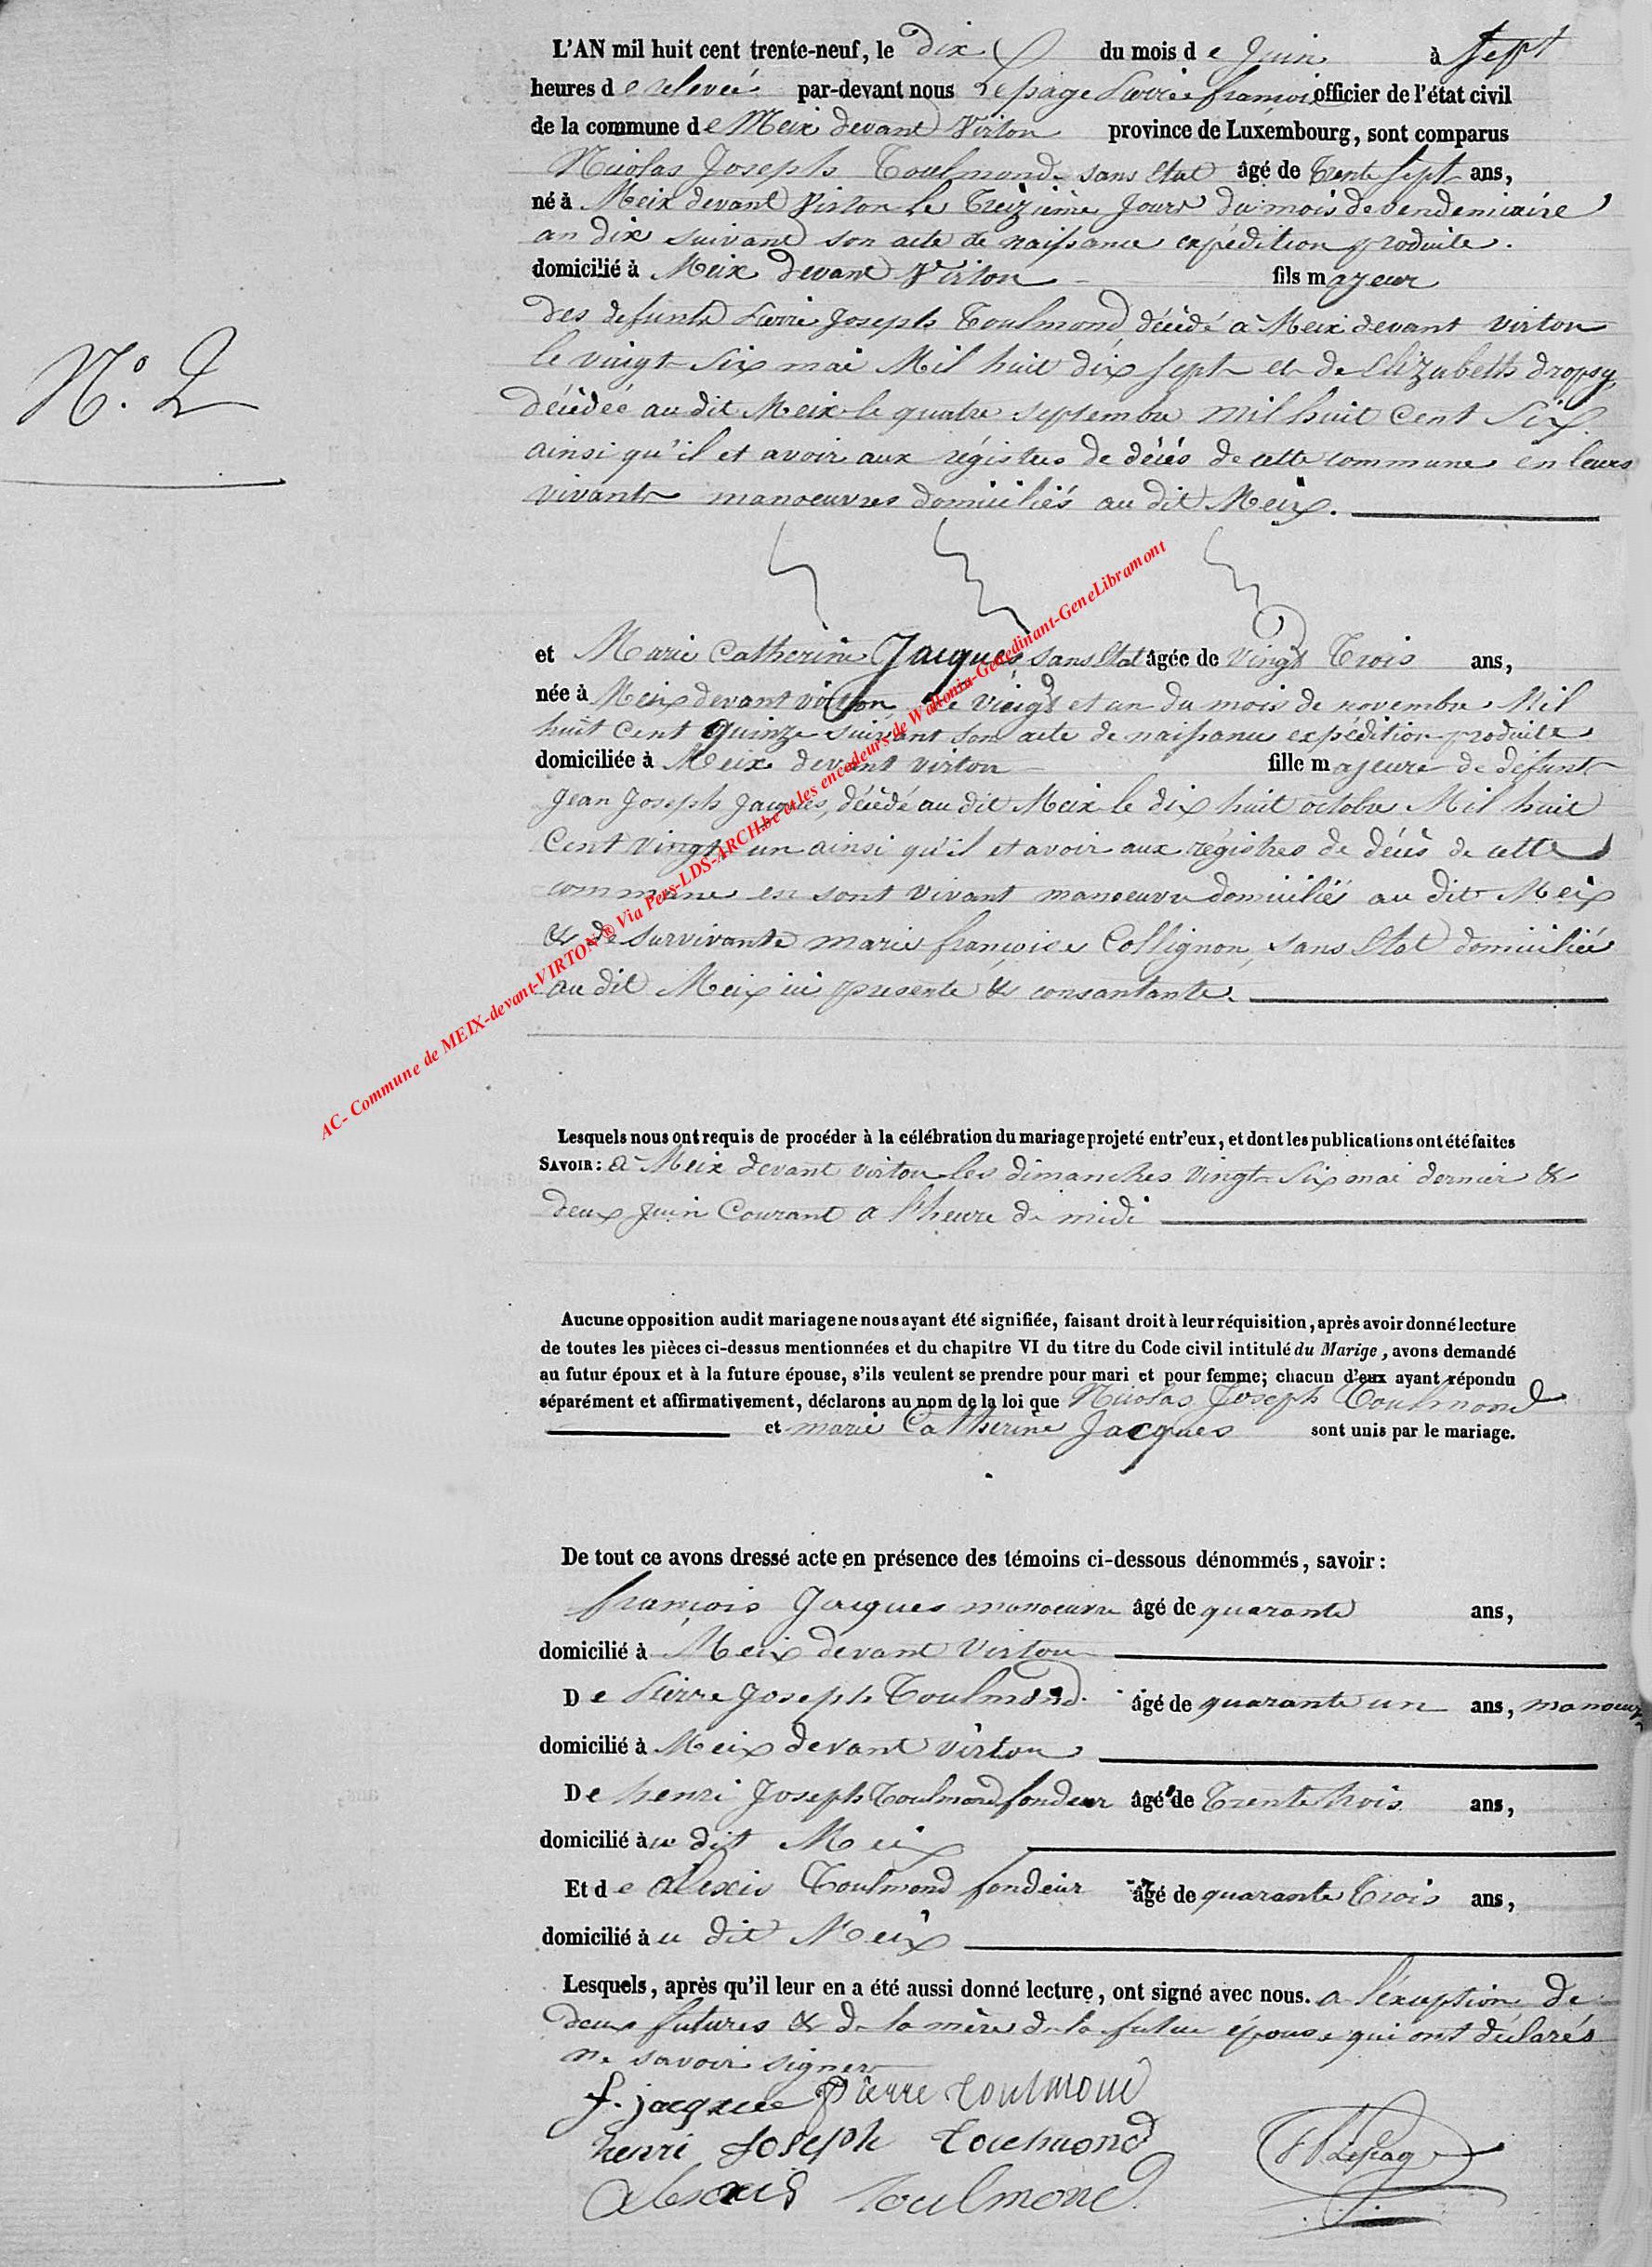 L'AN mil huit cent trente-neuf, le dix du mois de Juin à sept
heures de relevée par-devant nous Lepage Pierre françois officier de l'état civil
de la commune de Meix devant Virton province de Luxembourg, sont comparus
Nicolas Joseph Toulmond sans état âgé de trente sept ans,
né à Meix devant Virton le treizième jour du mois de vendemiaire
an dix suivant son acte de naissance expédition produite.
domicilié à Meix devant Virton fils majeur
des defunts Pierre Joseph Toulmond, décédé à Meix devant virton
le vingt six mai Mil huit dix sept et de Elizabeth dropsy
décédée au dit Meix le quatre septembre mil huit Cent Six.
ainsi qu'il et avoir aux régistres de décès de cette commune en leurs
vivants manoeuvres domiciliés au dit Meix.
N°. 2
et Marie Catherine Jacques, sans état âgée de vingt trois ans,
née à Meix devant virton le vingt et un du mois de novembre Mil
huit Cent quinze suivant son acte de naissance expédition produite
domiciliée à Meix devant virton fille majeure de défunt
Jean Joseph Jacques, décédé au dit Meix le dix huit octobre Mil huit
Cent vingt un ainsi qu'il et avoir aux régistres de décès de cette
commune en sont vivant manoeuvre domiciliés au dit Meix
& de survivante marie françoise Collignon, sans état domiciliée
au dit Meix ici presente & consantante.
AC- Commune de MEIX-devant-VIRTON ® Via Pers-LDS-ARCH.be et les encodeurs de Wallonia-Genedinant-GeneLibramont
Lesquels nous ont requis de procéder à la célébration du mariage projeté entr'eux, et dont les publications ont été faites
SAVOIR: à Meix devant virton les dimanches vingt six mai dernier &
deux juin Courant a l'heure de midi
Aucune opposition audit mariage ne nous ayant été signifiée, faisant droit à leur réquisition, après avoir donné lecture
de toutes les pièces ci-dessus mentionnées et du chapitre VI du titre du Code civil intitulé du Marige, avons demandé
au futur époux et à la future épouse, s'ils veulent se prendre pour mari et pour femme; chacun d'eux ayant répondu
séparément et affirmativement, déclarons au nom de la loi que Nicolas Joseph Toulmond
et marie Catherine Jacques sont unis par le mariage.
De tout ce avons dressé acte en présence des témoins ci-dessous dénommés, savoir:
françois Jacques manoeuvre âgé de quarante ans,
domicilié à Meix devant Virton
De Pierre Joseph Toulmond. âgé de quarante un ans, manoeuvre
domicilié à Meix devant virton
De henri Joseph Toulmond fondeur âgé de trente trois ans,
domicilié au dit Meix
Et de alexis Toulmond fondeur âgé de quarante trois ans,
domicilié au dit Meix
Lesquels, après qu'il leur en a été aussi donné lecture, ont signé avec nous. a l'exception de
deux futures & de la mère de la future épouse qui ont déclarés
ne savoir signer
f. jacques Pierre toulmond
henri Joseph toulmond
alexis toulmond
Lepage